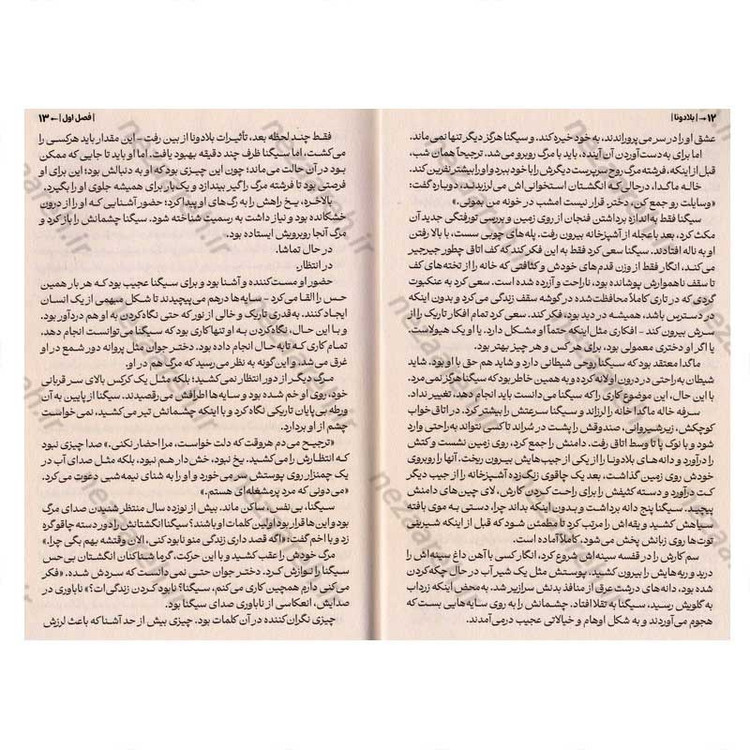 ۱۲ → | بلادونا |
عشق او را در سر می‌پروراندند، به خود خیره کند. و سیگنا هرگز دیگر تنها نمی‌ماند.
اما برای به‌دست‌آوردن آن آینده، باید با مرگ روبرو می‌شد. ترجیحاً همان شب،
قبل از اینکه، فرشته مرگ روح سرپرست دیگرش را با خود ببرد و او را بیشتر نفرین کند.
خاله ماگدا، درحالی‌که انگشتان استخوانی اش می‌لرزیدند، دوباره گفت:
«وسایلت رو جمع کن، دختر. قرار نیست امشب در خونه من بمونی.»
سیگنا فقط به‌اندازه برداشتن فنجان از روی زمین و بررسی تورفتگی جدید آن
مکث کرد. بعد با عجله از آشپزخانه بیرون رفت. پله‌های چوبی سست، با بالا رفتن
او به ناله افتادند. سیگنا سعی کرد فقط به این فکر کند که کف اتاق چطور جیرجیر
می‌کند، انگار فقط از وزن قدم‌های خودش و کثافتی که خانه را از تخته‌های کف
تا سقف ناهموارش پوشانده بود، ناراحت و آزرده شده است. سعی کرد به عنکبوت
گردی که در تاری کاملاً محافظت‌شده در گوشه سقف زندگی می‌کرد و بدون اینکه
در دسترس باشد، همیشه در دید بود، فکر کند. سعی کرد تمام افکار تاریک را از
سرش بیرون کند - افکاری مثل اینکه حتماً او مشکل دارد. یا او یک هیولاست.
یا اگر او دختری معمولی بود، برای هر کس و هر چیز بهتر بود.
ماگدا معتقد بود که سیگنا روحی شیطانی دارد و شاید هم حق با او بود. شاید
شیطان به راحتی در درون او لانه کرده و به همین خاطر بود که سیگنا هرگز نمی‌مرد.
با این حال، این موضوع کاری را که سیگنا می‌دانست باید انجام دهد، تغییر نداد.
سرفه خاله ماگدا خانه را لرزاند و سیگنا سرعتش را بیشتر کرد. در اتاق خواب
کوچکش، زیرشیروانی، صندوقش را پشت در شراند تا کسی نتواند به‌راحتی وارد
شود و با نوک پا وسط اتاق رفت. دامنش را جمع کرد، روی زمین نشست و کتش
را درآورد و دانه‌های بلادونا را از یکی از جیب‌هایش بیرون ریخت. آنها را روبروی
خودش روی زمین گذاشت، بعد یک چاقوی زنگ‌زده آشپزخانه را از جیب دیگر
کت درآورد و دسته کثیفش را برای راحت کردن کارش، لای چین‌های دامنش
پیچید. سیگنا پنج دانه برداشت و بدون اینکه بداند چرا، دستی به موی بافته
سیاهش کشید و یقه‌اش را مرتب کرد تا مطمئن شود که قبل از اینکه شیرینی
توت‌ها روی زبانش پخش می‌شود، کاملاً آماده است.
سم کارش در قفسه سینه‌اش شروع کرد، انگار کسی با آهن داغ سینه‌اش را
درید و ریه‌هایش را بیرون کشید. پوستش مثل یک شیر آب در حال چکه‌کردن
شده بود، دانه‌های درشت عرق از منافذ بدنش سرازیر شد. به‌محض اینکه زرداب
به گلویش رسید، سیگنا به تقلا افتاد. چشمانش را به روی سایه‌هایی بست که
هجوم می‌آوردند و به شکل اوهام و خیالاتی عجیب درمی‌آمدند.
| فصل اول | ← ۱۳
فقط چند لحظه بعد، تأثیرات بلادونا از بین رفت - این مقدار باید هرکسی را
می‌کشت، اما سیگنا ظرف چند دقیقه بهبود یافت. اما او باید تا جایی که ممکن
بود در آن حالت می‌ماند؛ چون این چیزی بود که او به دنبالش بود؛ این برای او
فرصتی بود تا فرشته مرگ را گیر بیندازد و یک‌بار برای همیشه جلوی او را بگیرد.
بالاخره، یخ راهش را به رگ‌های او پیدا کرد؛ حضور آشنایی که او را از درون
خشکانده بود و نیاز داشت به رسمیت شناخته شود. سیگنا چشمانش را باز کرد و
مرگ آنجا روبرویش ایستاده بود.
در حال تماشا.
در انتظار.
حضور او مست‌کننده و آشنا بود و برای سیگنا عجیب بود که هر بار همین
حس را القا می‌کرد - سایه‌ها درهم می‌پیچیدند تا شکل مبهمی از یک انسان
ایجاد کنند. به‌قدری تاریک و خالی از نور که حتی نگاه‌کردن به او هم دردآور بود.
و با این حال، نگاه‌کردن به او تنها کاری بود که سیگنا می‌توانست انجام دهد،
تمام کاری که تا به‌حال انجام داده بود. دختر جوان مثل پروانه دور شمع در او
غرق می‌شد، و این‌گونه به نظر می‌رسید که مرگ هم در او.
مرگ دیگر از دور انتظار نمی‌کشید؛ بلکه مثل یک کرکس بالای سر قربانی
خود، روی او خم شده بود و سایه‌ها اطرافش می‌رقصیدند. سیگنا از پایین به آن
ورطه بی‌پایان تاریکی نگاه کرد و با اینکه چشمانش تیر می‌کشید، نمی‌خواست
چشم از او بردارد.
«ترجیح می‌دم هروقت که دلت خواست، مرا احضار نکنی.» صدا چیزی نبود
که انتظارش را می‌کشید. یخ نبود، خش‌دار هم نبود، بلکه مثل صدای آب در
یک چمنزار روی پوستش سر می‌خورد و او را به شنای نیمه‌شبی دعوت می‌کرد.
«می‌دونی که مرد پرمشغله‌ای هستم.»
سیگنا، بی‌نفس، ساکن ماند. بیش از نوزده سال منتظر شنیدن صدای مرگ
بود و این‌ها قرار بود اولین کلمات او باشند؟ سیگنا انگشتانش را دور دسته چاقو گره
زد و با اخم گفت: «اگه قصد داری زندگی منو نابود کنی، الان وقتشه بهم بگی چرا.»
مرگ خودش را عقب کشید و با این حرکت، گرما شناکنان انگشتان بی‌حس
سیگنا را نوازش کرد. دختر جوان حتی نمی‌دانست که سردش شده. «فکر
می‌کنی دارم همچین کاری می‌کنم، سیگنا؟ نابود کردن زندگی‌ات؟» ناباوری در
صدایش، انعکاسی از ناباوری صدای سیگنا بود.
چیزی نگران‌کننده در آن کلمات بود. چیزی بیش از حد آشنا که باعث لرزش
nezaareh.ir